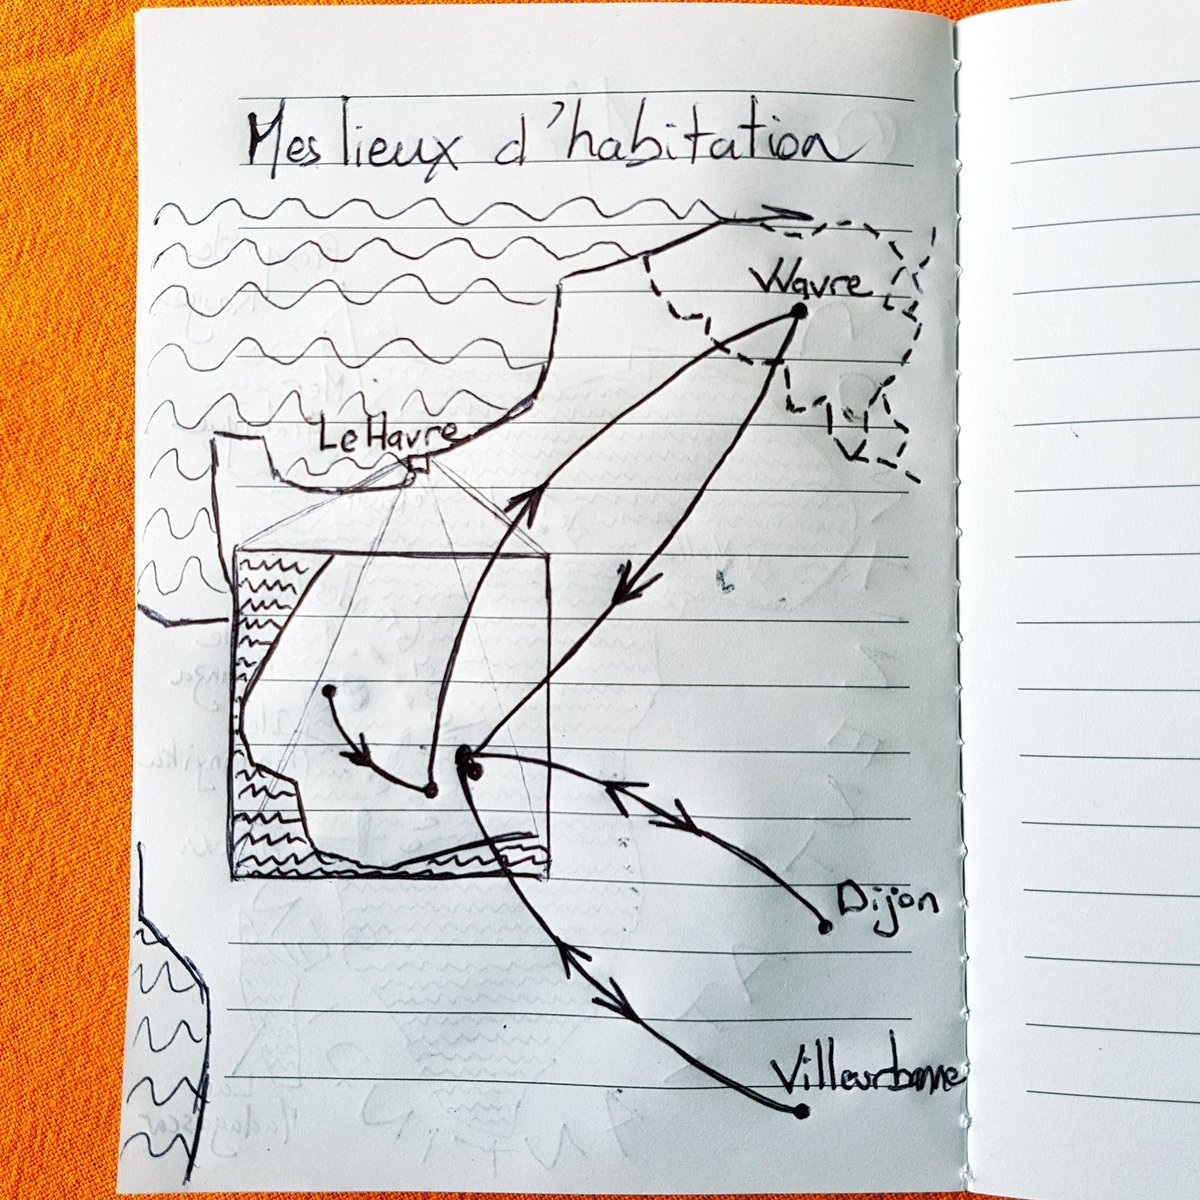 Mes lieux d'habitation
Wavre
Le Havre
Dijon
Villeurbanne